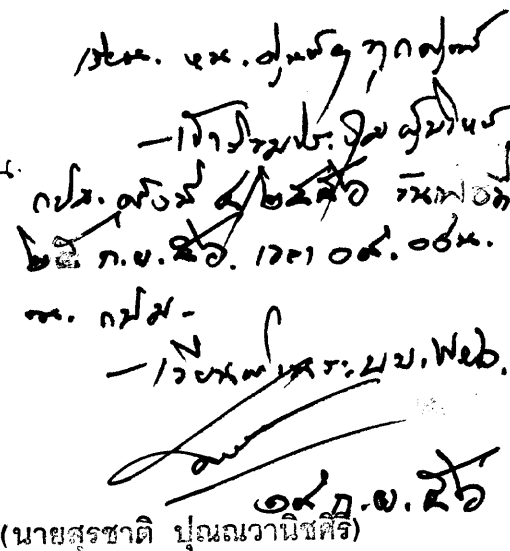 เรียน. หน. ศูนย์ฯ ทุกศูนย์
- เข้าร่วมประชุม ผู้บริหาร
กปม. ครั้งที่ ๙/๒๕๕๖ วันพุธที่
๒๕ ก.ย. ๕๖. เวลา ๐๙.๐๐น.
ณ. กปม.
- เวียนในระบบ.
๑๙ ก.ย. ๕๖
(นายสุรชาติ ปุณณวานิชศิริ)